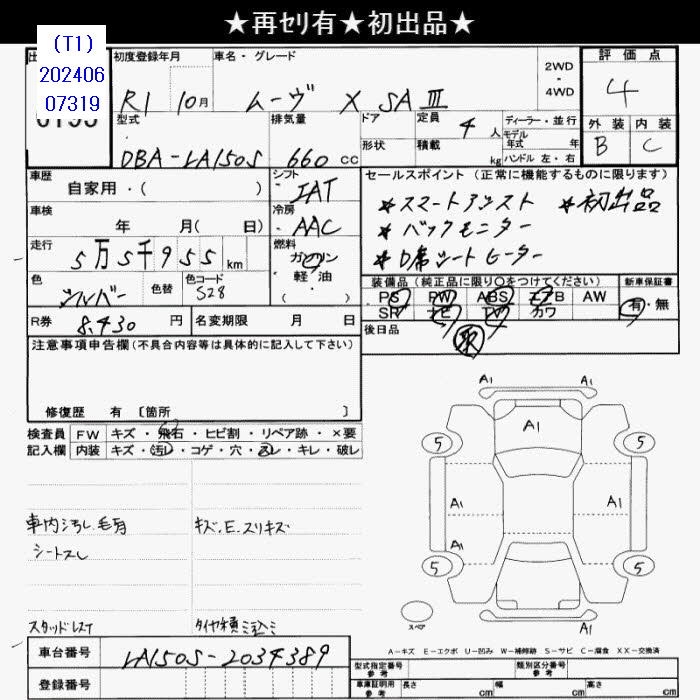 ★再セリ有★初出品★
(T1)
202406
07319
初度登録年月
R1 10月
車名・グレード
ムーヴ X SAⅢ
2WD
・
4WD
評価点
4
型式
DBA-LA150S
排気量
660 cc
ドア
形状
定員 4 人
積載 kg
ディーラー・並行
モデル
年式 年
ハンドル 左・右
外装 内装
B C
車歴
自家用・( )
シフト
IAT
車検
年 月( 日)
冷房
AAC
走行
5万5千955 km
燃料
ガソリン
軽・油
( )
色
シルバー
色替
色コード
S28
R券 8,430 円
名変期限 月 日
セールスポイント (正常に機能するものに限ります)
*スマートアシスト *初出品
*バックモニター
*D席シートヒーター
装備品(純正品に限り○をつけてください)
PS PW ABS エアB AW
SR ナビ TV カワ
新車保証書
有・無
後日品
取
注意事項申告欄(不具合内容等は具体的に記入して下さい)
修復歴 有 〔箇所 〕
検査員 FW キズ・飛石・ヒビ割・リペア跡・×要
記入欄 内装 キズ・汚レ・コゲ・穴・スレ・キレ・破レ
車内汚し、毛有 キズ、E、スリキズ
シートスレ
スタッドレス タイヤ積ミ込ミ
A1 A1
A1
5 5
A1 A1
A1
5 5
スペア
A1
A-キズ E-エクボ U-凹み W-補修跡 S-サビ C-腐食 XX-交換済
車台番号 LA150S-2034389
登録番号
型式指定番号
参考
類別区分番号
参考
車庫証明用
参考
長さ cm 幅 cm 高さ cm